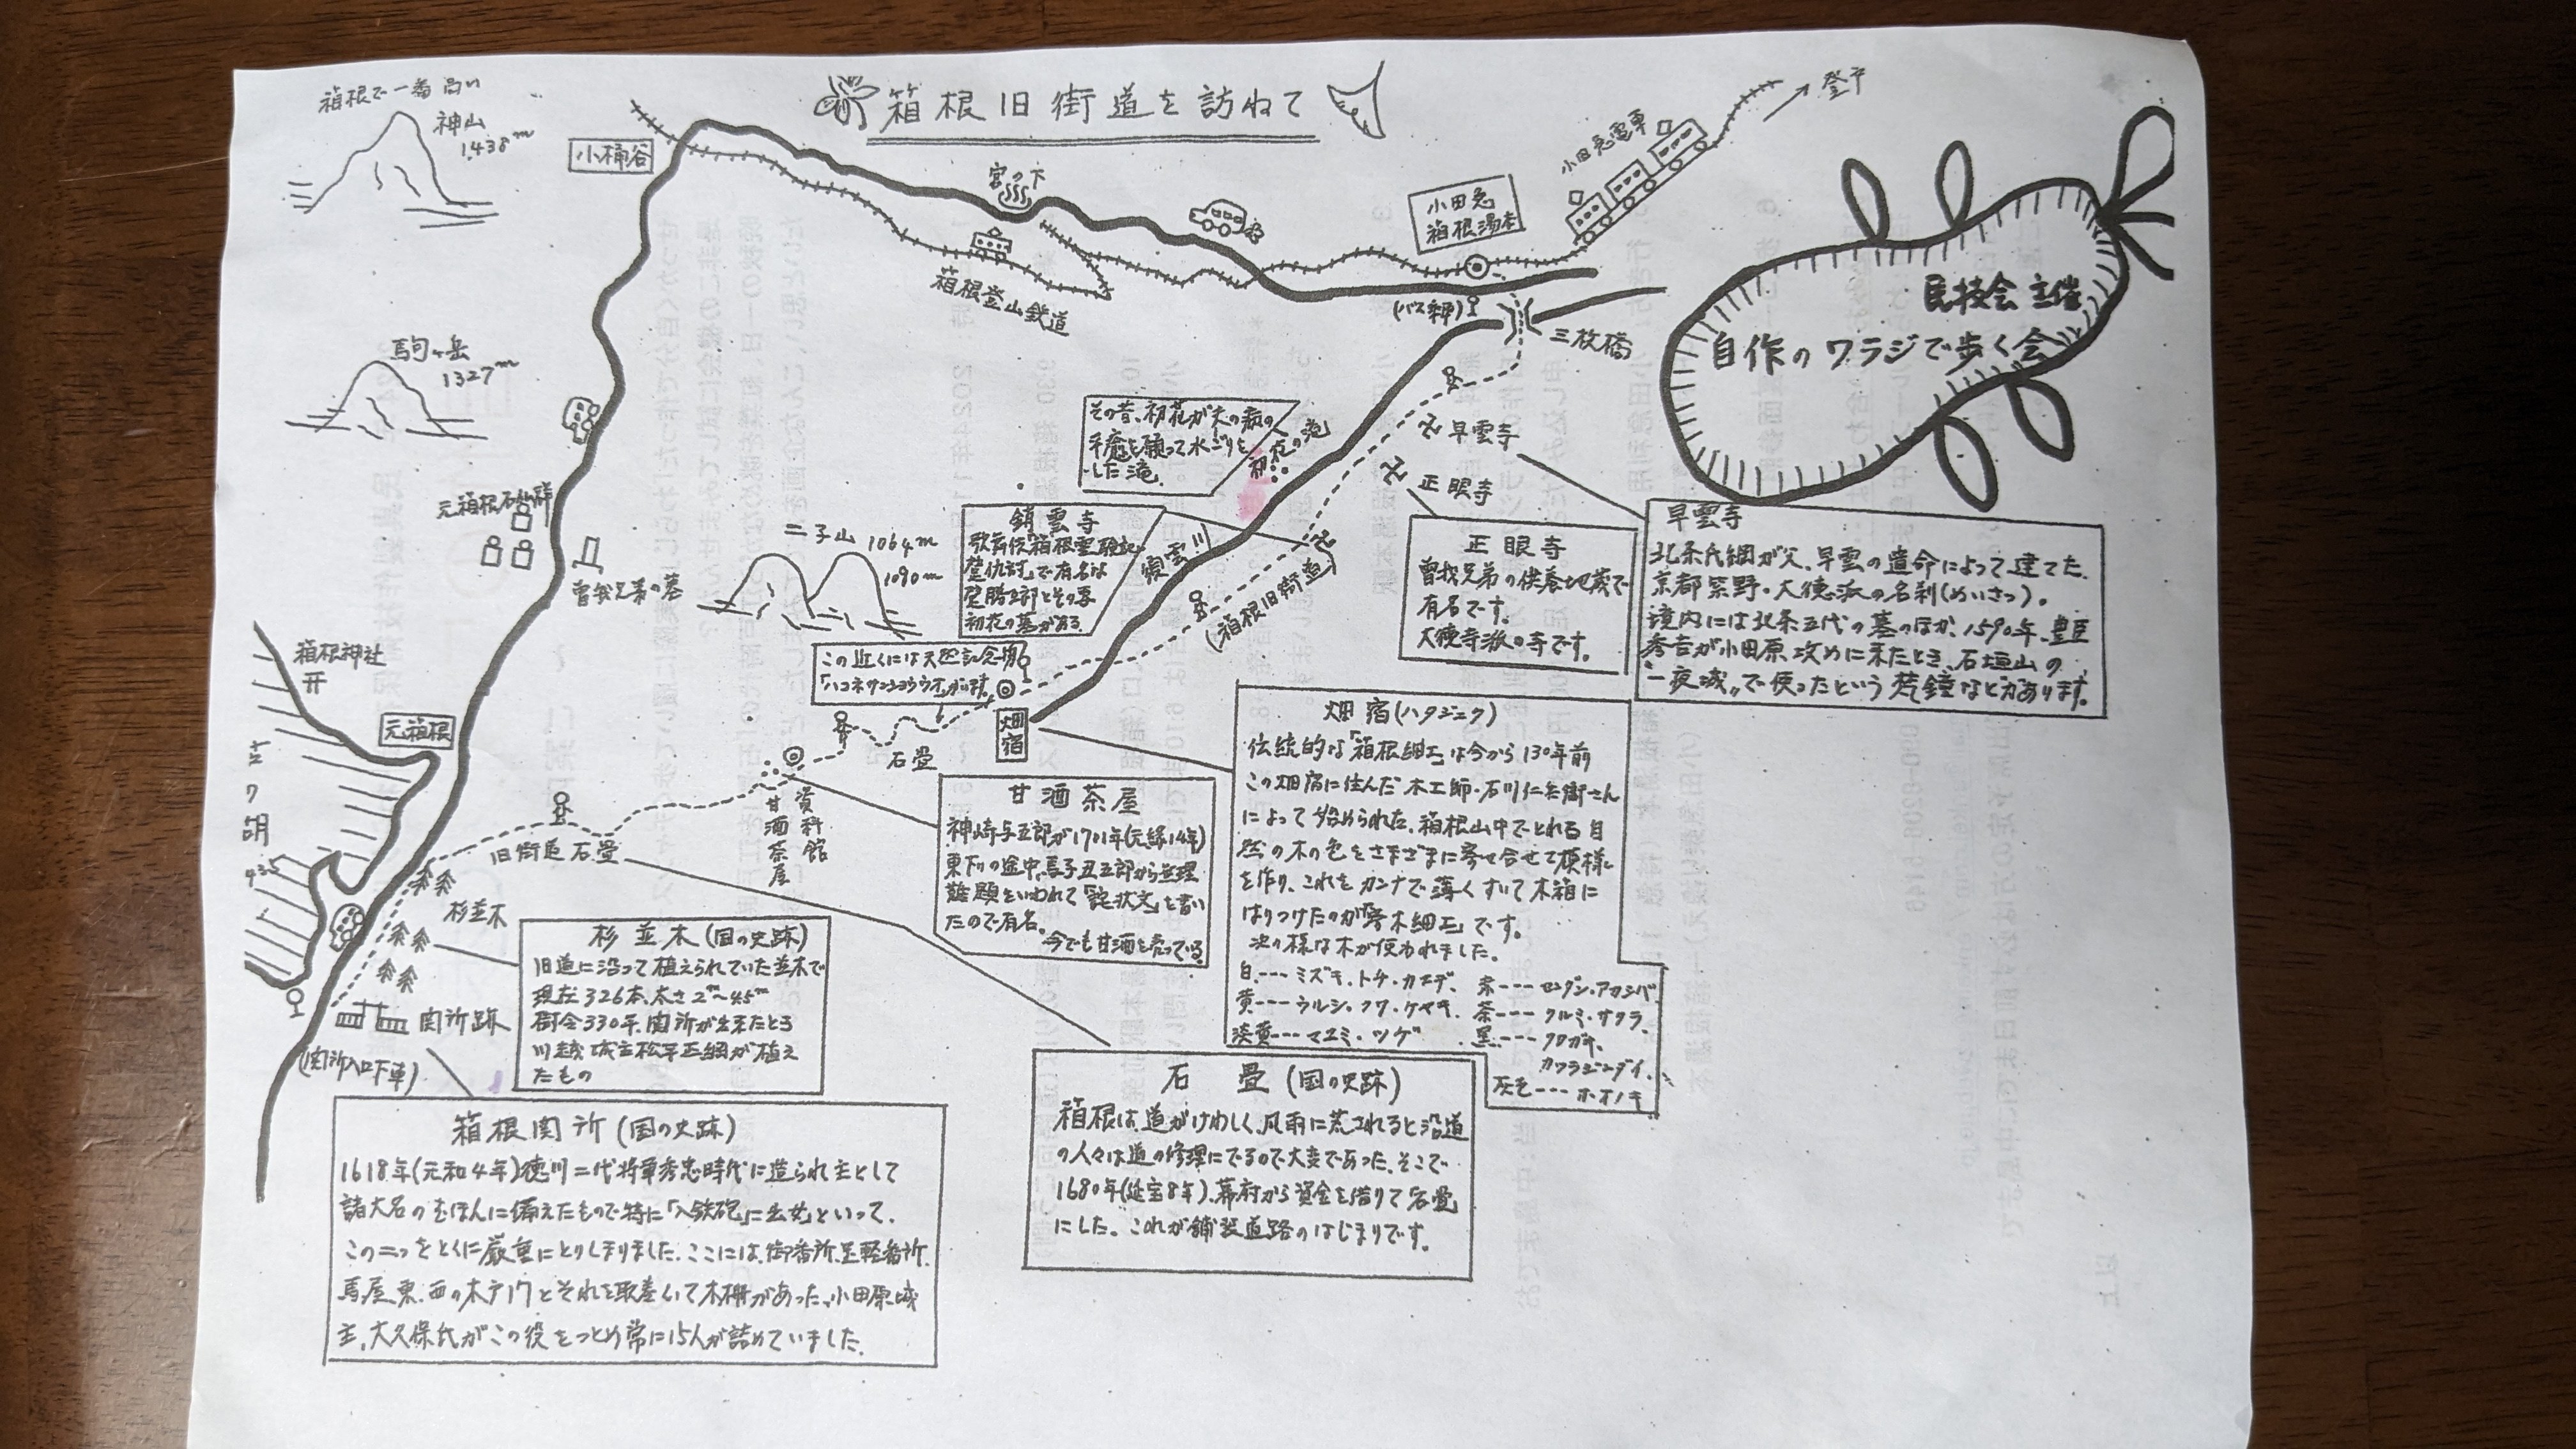 箱根旧街道を訪ねて
箱根で一番高い
神山
1,438m
小桶谷
宮の下
箱根登山鉄道
小田急
箱根湯本
小田急電車
登戸
(バス停)
三枚橋
民技会 主催
自作のワラジで歩く会
駒ヶ岳
1327m
元箱根石仏群
曽我兄弟の墓
二子山 1064m
1090m
その昔、初花が夫の病の
平癒を願って水ごりを
した滝。
初花の滝
早雲寺
正眼寺
鎖雲寺
歌舞伎「箱根霊験記
躄仇討」で有名な
躄勝五郎とその妻
初花の墓がある。
須雲川
(箱根旧街道)
正眼寺
曽我兄弟の供養地蔵で
有名です。
大徳寺派の寺です。
早雲寺
北条氏綱が父、早雲の遺命によって建てた、
京都紫野・大徳派の名刹(めいさつ)。
境内には北条五代の墓のほか、1590年、豊臣
秀吉が小田原攻めに来たとき、石垣山の
"一夜城"で使ったという梵鐘などがあります。
この近くには天然記念物
「ハコネサンショウウオ」がいます。
畑宿
石畳
箱根神社
元箱根
芦ノ湖
資料館
甘酒茶屋
旧街道石畳
杉並木
関所跡
(関所入口下車)
畑宿(ハタジュク)
伝統的な「箱根細工」は今から130年前
この畑宿に住んだ木工師・石川仁兵衛さん
によって始められた、箱根山中でとれる自
然の木の色をさまざまに寄せ合せて模様
を作り、これをカンナで薄くすいて木箱に
はりつけたのが「寄木細工」です。
次の様な木が使われました。
白---ミズキ、トチ・カエデ、
黄---ウルシ・クワ・ケヤキ、
淡黄---マユミ・ツゲ
茶---クルミ・サクラ、
カツラジンダイ、
灰色---ホオノキ
甘酒茶屋
神崎与五郎が1701年(元禄14年)
東下りの途中、馬子丑五郎から無理
難題をいわれて「詫状文」を書い
たので有名。
今でも甘酒を売っている。
杉並木(国の史跡)
旧道に沿って植えられていた並木で
現在326本、太さ2m~4.5m
樹令330年、関所が出来たころ
川越城主松平正綱が植え
たもの
石畳(国の史跡)
箱根は、道がけわしく、風雨に荒されると沿道
の人々は道の修理にでるので大変であった、そこで
1680年(延宝8年)、幕府から資金を借りて「石畳」
にした。これが舗装道路のはじまりです。
箱根関所(国の史跡)
1618年(元和4年)徳川二代将軍秀忠時代に造られ主として
諸大名のむほんに備えたもので特に「入鉄砲」に出女といって、
この二つをとくに厳重にとりしまりました。ここには、御番所、足軽番所、
馬屋、東、西の木戸門とそれを取巻いて木柵があった、小田原城
主、大久保氏がこの役をつとめ常に15人が詰めていました。